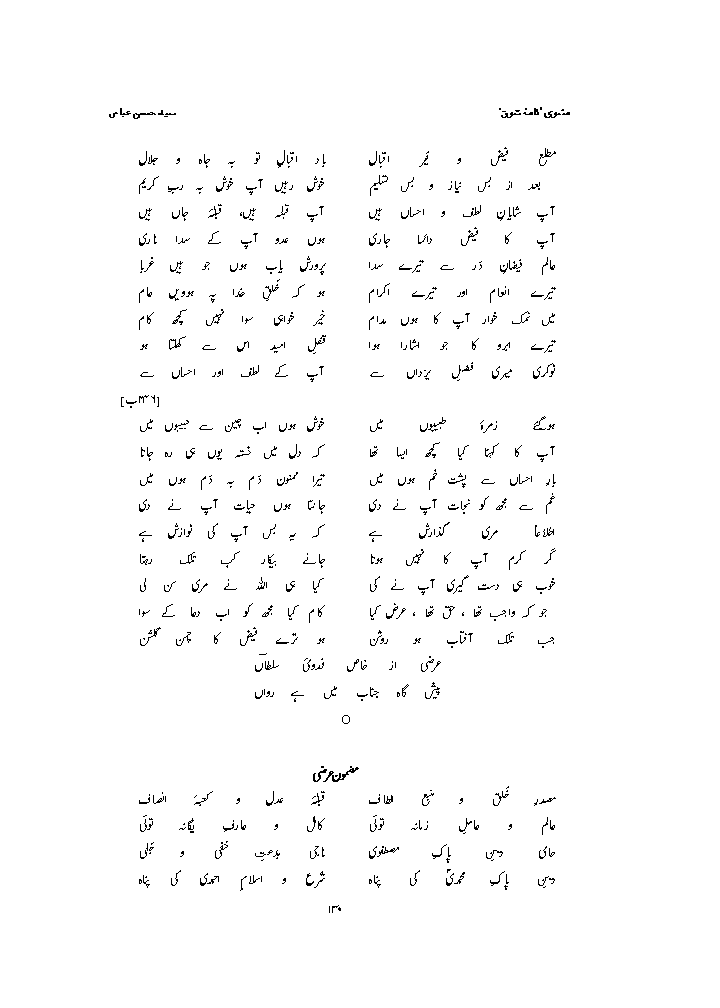 مثنوی 'نامۂ شوق' سید حسن عباس
مطلع فیض و نیر اقبال باد اقبال تو بہ جاہ و جلال
بعد از بس نیاز و بس تسلیم خوش رہیں آپ خوش بہ رب کریم
آپ شایانِ لطف و احساں ہیں آپ قبلہ ہیں، قبلۂ جاں ہیں
آپ کا فیض دائما جاری ہوں عدو آپ کے سدا ناری
عالم فیضانِ در سے تیرے سدا پرورش یاب ہوں جو ہیں غربا
تیرے انعام اور تیرے اکرام ہو کہ خَلقِ خدا پہ ہوویں عام
میں نمک خوار آپ کا ہوں مدام خیر خواہی سوا نہیں کچھ کام
تیرے ابرو کا جو اشارا ہوا قفلِ امید اس سے کھلتا ہو
نوکری میری فضلِ یزداں سے آپ کے لطف اور احساں سے
[۲۳۶ب]
ہوگئے زمرۂ طبیبوں میں خوش ہوں اب چین سے حبیبوں میں
آپ کا کہنا کیا کچھ ایسا تھا کہ دل میں خستہ یوں ہی رہ جاتا
بارِ احساں سے پشت خم ہوں میں تیرا ممنون دَم بہ دَم ہوں میں
غم سے مجھ کو نجات آپ نے دی جانتا ہوں حیات آپ نے دی
اطلاعاً مری گذارش ہے کہ یہ بس آپ کی نوازش ہے
گر کرم آپ کا نہیں ہوتا جانے بیکار کب تلک رہتا
خوب ہی دست گیری آپ نے کی کیا ہی اللہ نے مری سن لی
جو کہ واجب تھا ، حق تھا ، عرض کیا کام کیا مجھ کو اب دعا کے سوا
جب تلک آفتاب ہو روشن ہو ترے فیض کا چمن گلشن
عرضی از خاص فدویٔ سلطاں
پیش گاہ جناب میں ہے رواں
O
مضمون عرضی
مصدرِ خُلق و منبعِ الطاف قبلۂ عدل و کعبۂ انصاف
عالم و عاملِ زمانہ توئی کامل و عارفِ یگانہ توئی
حامی دینِ پاکِ مصطفوی ماحی بدعتِ خفی و جلی
دینِ پاکِ محمدیؐ کی پناہ شرع و اسلامِ احمدی کی پناہ
۱۳۹